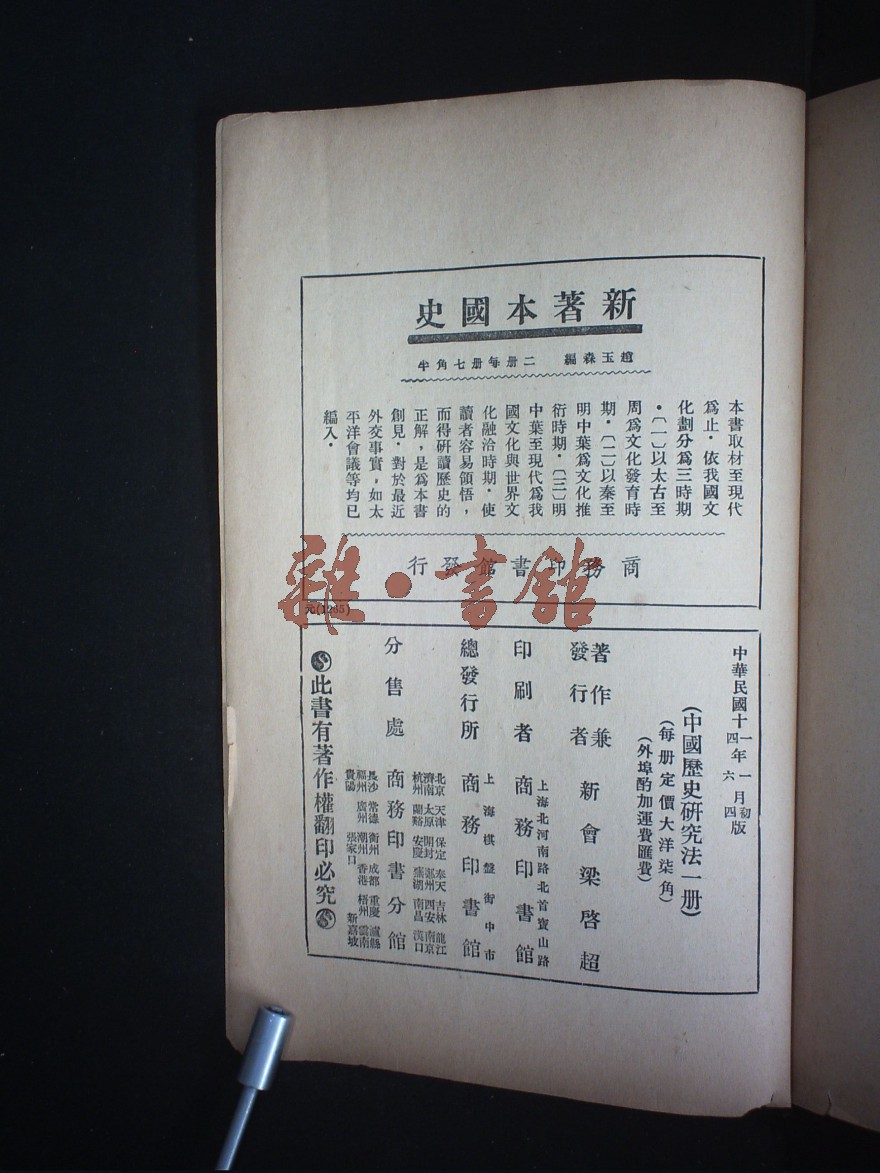 新著本國史
趙玉森編　二册每册七角半
本書取材至現代
爲止．依我國文
化劃分爲三時期
．〔一〕以太古至
周爲文化發育時
期．〔二〕以秦至
明中葉爲文化推
衍時期．〔三〕明
中葉至現代爲我
國文化與世界文
化融洽時期．使
讀者容易領悟，
而得硏讀歷史的
正解，是爲本書
創見．對於最近
外交事實，如太
平洋會議等均已
編入．
商務印書館發行
雜·書館
中華民國十一年一月初版
四　六　四
(中國歷史研究法一册)
(每册定價大洋柒角)
(外埠酌加運費匯費)
著作兼
發行者
新會梁啓超
印刷者
上海北河南路北首寶山路
商務印書館
總發行所
上海棋盤街中市
商務印書館
分售處
商務印書分館
北京 天津 保定 奉天 吉林 龍江
濟南 太原 開封 鄭州 西安 南京
杭州 蘭谿 安慶 蕪湖 南昌 漢口
長沙 常德 衡州 成都 重慶 瀘縣
福州 廣州 潮州 香港 梧州 雲南
貴陽 張家口 新嘉坡
此書有著作權翻印必究